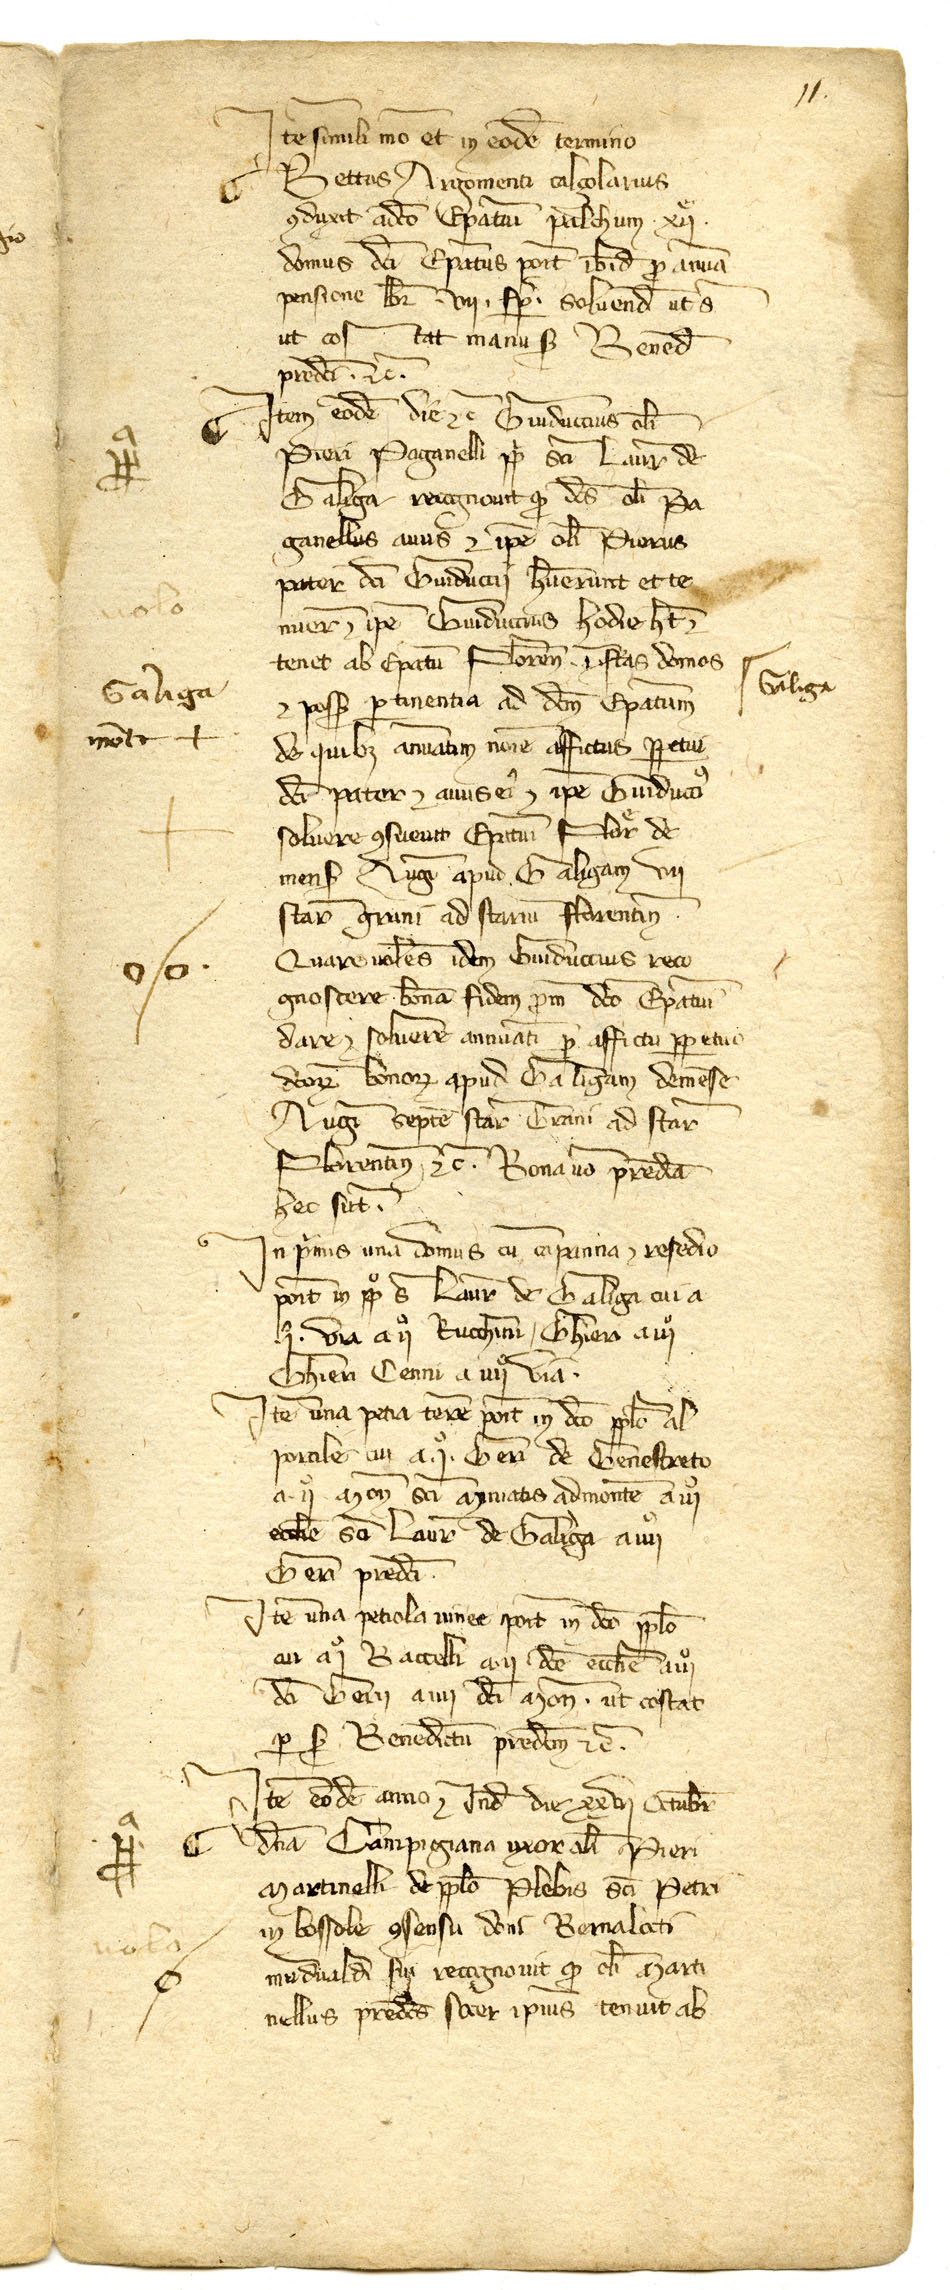 11.
Ite simili mo et in eode termino
Bettus Argomenti calçolarius
9duxit a dco Epatu palchum xii
domus dci Epatus poit ibid p annua
pensione lbr vii fp. solvend ut s
ut cos tat manu s Bened
predci ⁊c.
Item eode die ⁊c Guiduccius oli
Pieri Paganelli pp sci Laur de
Galiga recognovit q dcs oli Pa
ganellus avus ⁊ ipe oli Pierus
pater dci Guiduccii huerunt et te
nuer ⁊ ipe Guiduccius hodie ht ⁊
tenet ab Epatu Floren ifras domos
⁊ poss ptinentia ad dcm Epatum
de quibz annuatim noie affictus ppetui
dci pater ⁊ avus ei9 ⁊ ipe Guiducci9
solvere 9suevit Epatui Flor de
mens Aug apud Galigam vii
star grani ad starium florentin.
Quare volens idem Guiduccius reco
gnoscere bona fidem pm dco Epatui
dare ⁊ solvere annuati p affictu ppetuo
dcorz bonorz apud Galigam de mese
Aug septe star Grani ad star
Florentin ⁊c. Bona vo predca
hec sut.
In pmis una domus cu capanna ⁊ resedio
poit in pp s Laur de Galiga cui a
p. via a ii Rucchini Ghieri a iii
Ghieri Cenni a iiii via.
Ite una petia terre poit in dco pplo al
porcile cui a p. Geri de Genestreto
a ii Mon sci Miniatis ad monte a iii
ecclie sci Laur de Galiga a iiii
Geri predci.
Ite una petiola vinee poit in dco pplo
cui a i Baccelli a ii dce ecclie a iii
dci Gerii a iiii dci Mon. ut costat
p s Benedictu predcm ⁊c.
Ite eode anno ⁊ Ind die xxvii Octubr
dna Campigiana uxor oli Pieri
Martinelli de pplo Plebis sci Petri
in bossole 9sensu doni Bernaldi
mundualdi sui recognovit q oli Marti
nellus predcs socer ipius tenuit ab
volo
Galiga
monte +
Galiga
o/o.
volo